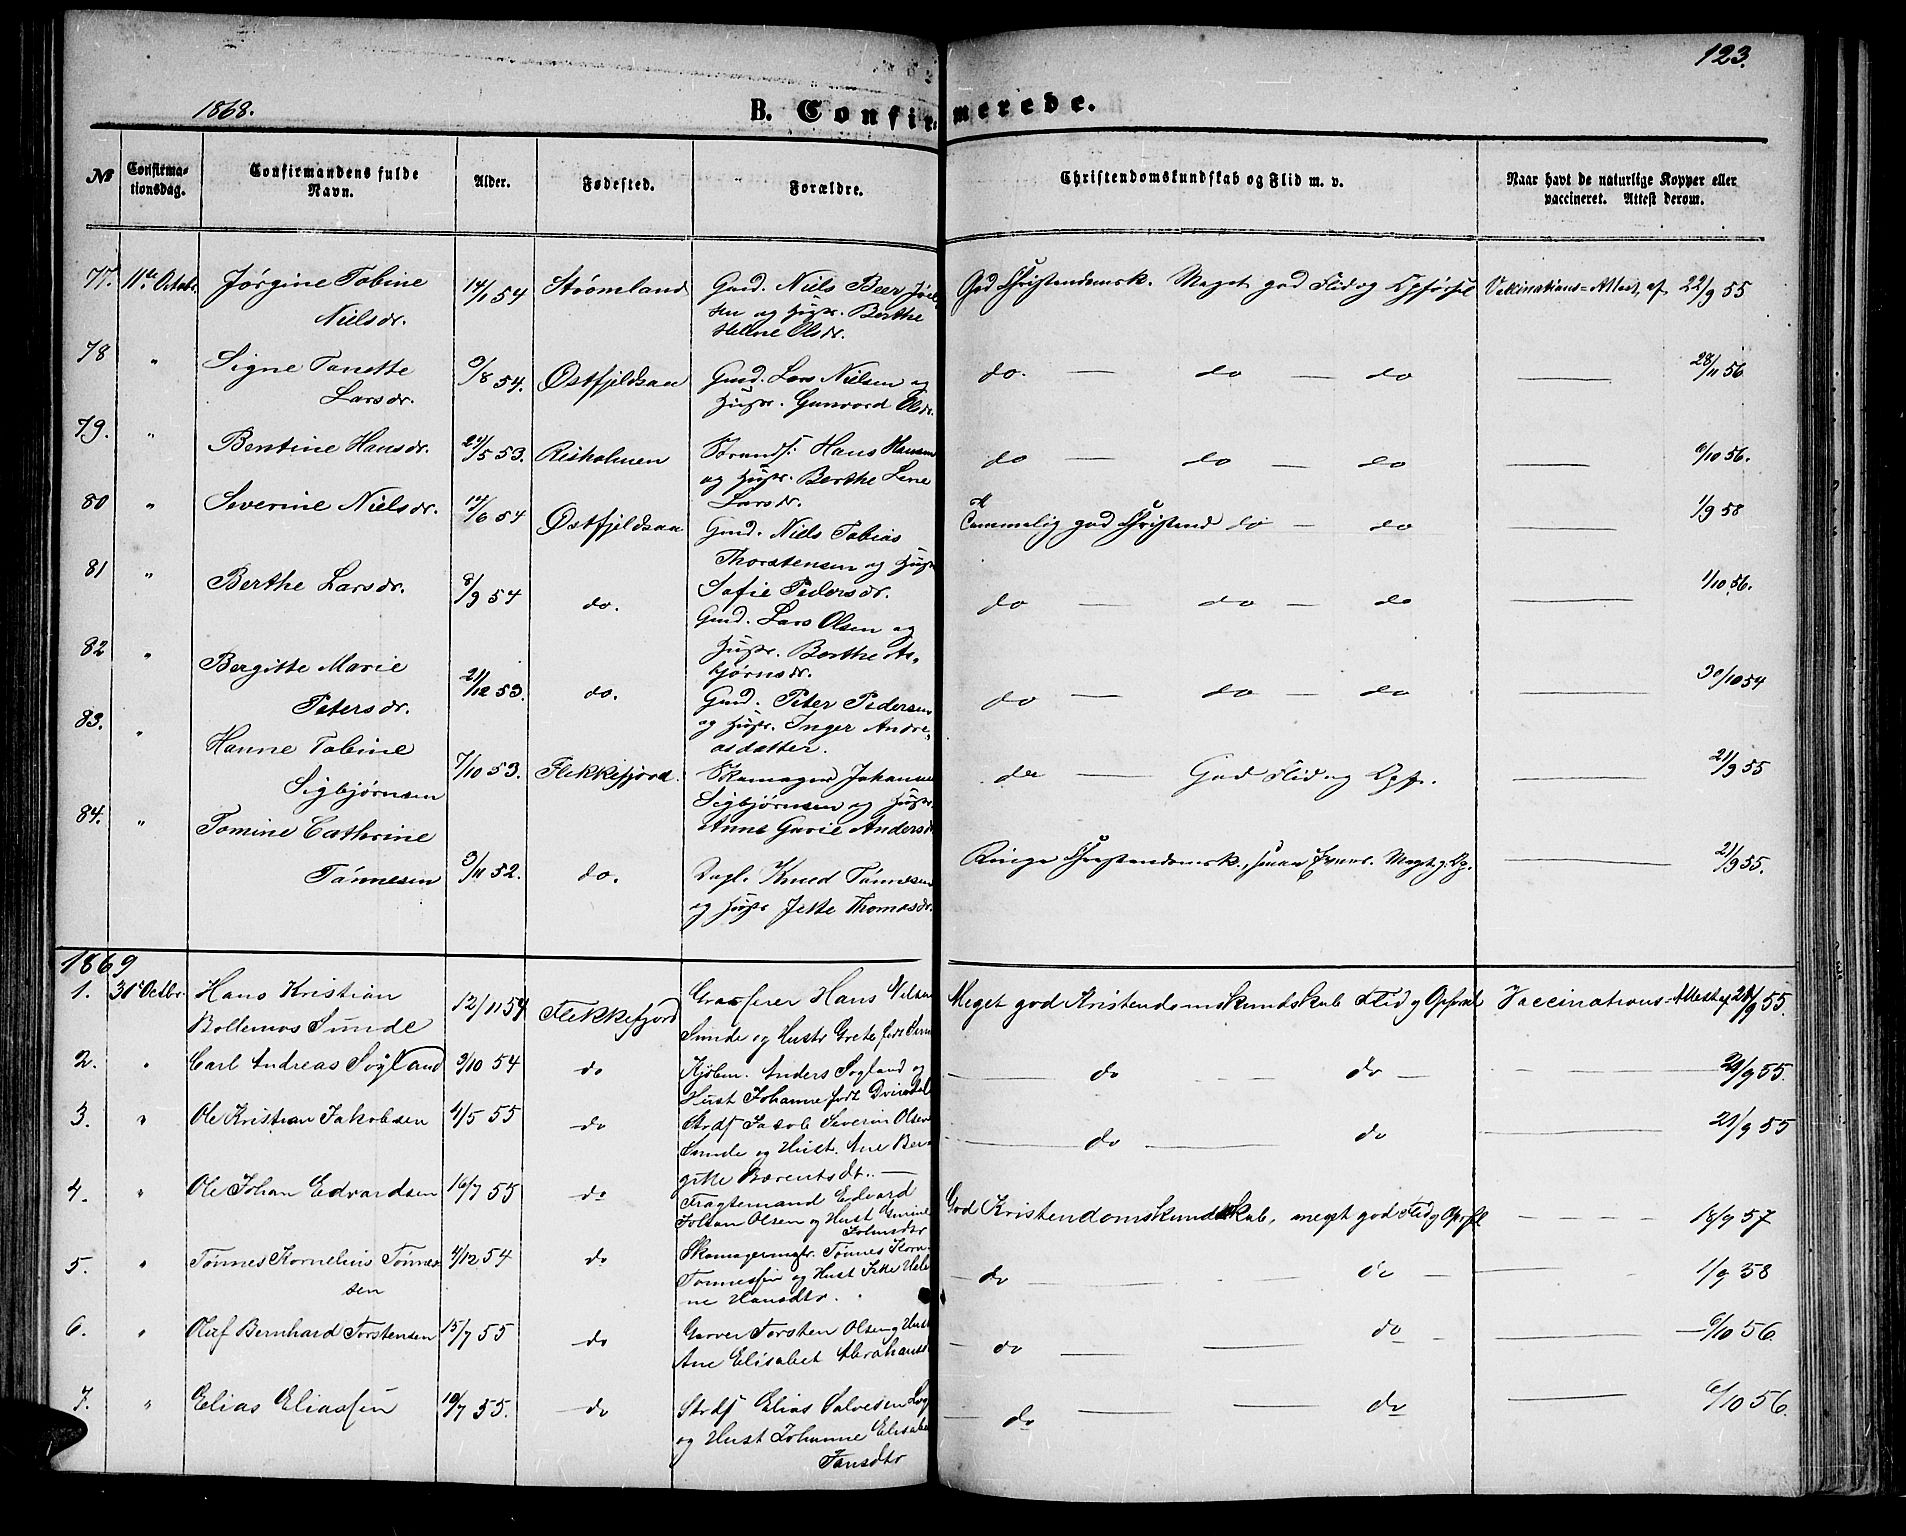 123.
1868.
B. Confirmerede.
№ Confirmationsdag. Confirmandens fulde Navn. Alder. Fødested. Forældre. Christendomskundskab og Flid m. v. Naar havt de naturlige Kopper eller vaccineret. Attest derom.
77. 11te Octob. Jørgine Tobine 14/1 54 Strømland Gmd. Niels Beer God Christendomsk. Meget god Flid og Opførsel Vakinations-Attest af 22/9 55
Nielsdr. sen og Hust. Berthe
Helene Olsdr.
78 " Signe Tanette 9/8 54. Østfjeldsaa Gmd. Lars Nielsen og do. — do — do — 28/11 56
Larsdr. Hust. Gunvord Olsdr.
79. " Bentine Hansdr. 24/5 53. Risholmen Strands. Hans Hansen do — do — do — 6/10 56.
og Hust. Berthe Lene
Larsdr.
80 " Severine Nielsdr. 14/6 54 Østfjeldsaa Gmd. Niels Tobias Temmelig god Christend do — do 1/9 58
Thorstensen og Hust.
Sofie Pedersdr.
81 " Berthe Larsdr. 8/9 54 do. Gmd. Lars Olsen og do — do — do — 1/10 56.
Hust. Berthe As-
bjørnsdr.
82 " Bergitte Marie 21/12 53. do. Gmd. Peter Pedersen do — do — do — 30/10 54
Petersdr. og Hust. Inger Andre-
asdatter.
83. " Hanne Tobine 7/10 53. Flekkefjord. Skomager Johannes do — God Flid og Opf. — 21/9 55
Sigbjørnsen Sigbjørnsen og Hust.
Anne Gurie Andersdr
84. " Tomine Cathrine 3/11 52. do. Dagl. Knud Tönnesen Ringe Christendomsk., smaa Evner. Meget g. Op. — 21/9 55.
Tönnesen og Hust Jette Thomasdr.
1869
1. 31e Octbr. Hans Kristian 12/11 54 Flekkefjord Hans Nilsen Meget god Kristendomskundskab Flid og Opførsel Vaccinations-Attest af 21/9 55.
Boltemos Sunde Sunde og Hustr Grete født
2. " Carl Andreas Søyland 9/10 54 do Kjøbm. Anders Søgland og — do — do — 29/9 55.
Hust Johanne født
3. " Ole Kristian Jakobsen 4/5 55 do Strdf Jacob Severin Olsen — do — do — 21/9 55
Sunde og Hust. Ane Ber-
gitte Bærentsdt. —
4. " Ole Johan Edvardsen 16/7 55 do Fragtemand Edvard God Kristendomskundskab, meget god Flid og Opfsl — 18/9 57
Johan Olsen og Hust Gurine
5. " Tønnes Kornelius Tønnes- 4/12 54 do Skomagermstr. Tønnes Korn- — do — do — 1/9 58
sen Tønnessen og Hust Jitte Hele-
ne Hansdtr.
6. " Oluf Bernhard Torstensen 15/7 55 do Garver Torsten Olsen og Hust do — do — 6/10 56
Ane Elisabet Abrahams
7. " Elias Eliassen 10/7 55. do Strdf Elias Salvesen — do — do — 6/10 56.
og Hust Johanne Elisabe
Jansdtr